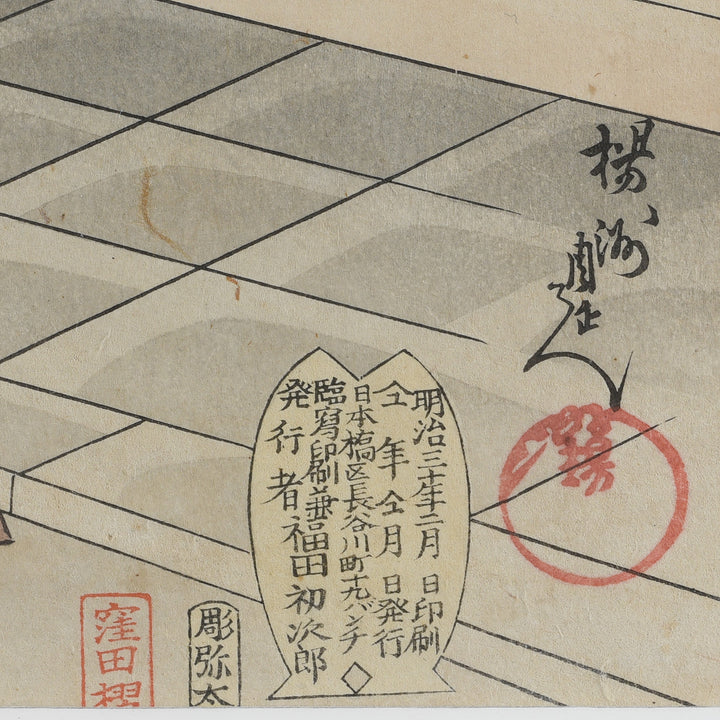 楊洲周延
明治三十年二月 日印刷
仝年仝月 日発行
日本橋区長谷川町十九バンチ
臨寫印刷兼
発行者福田初次郎
彫弥太
窪田櫻